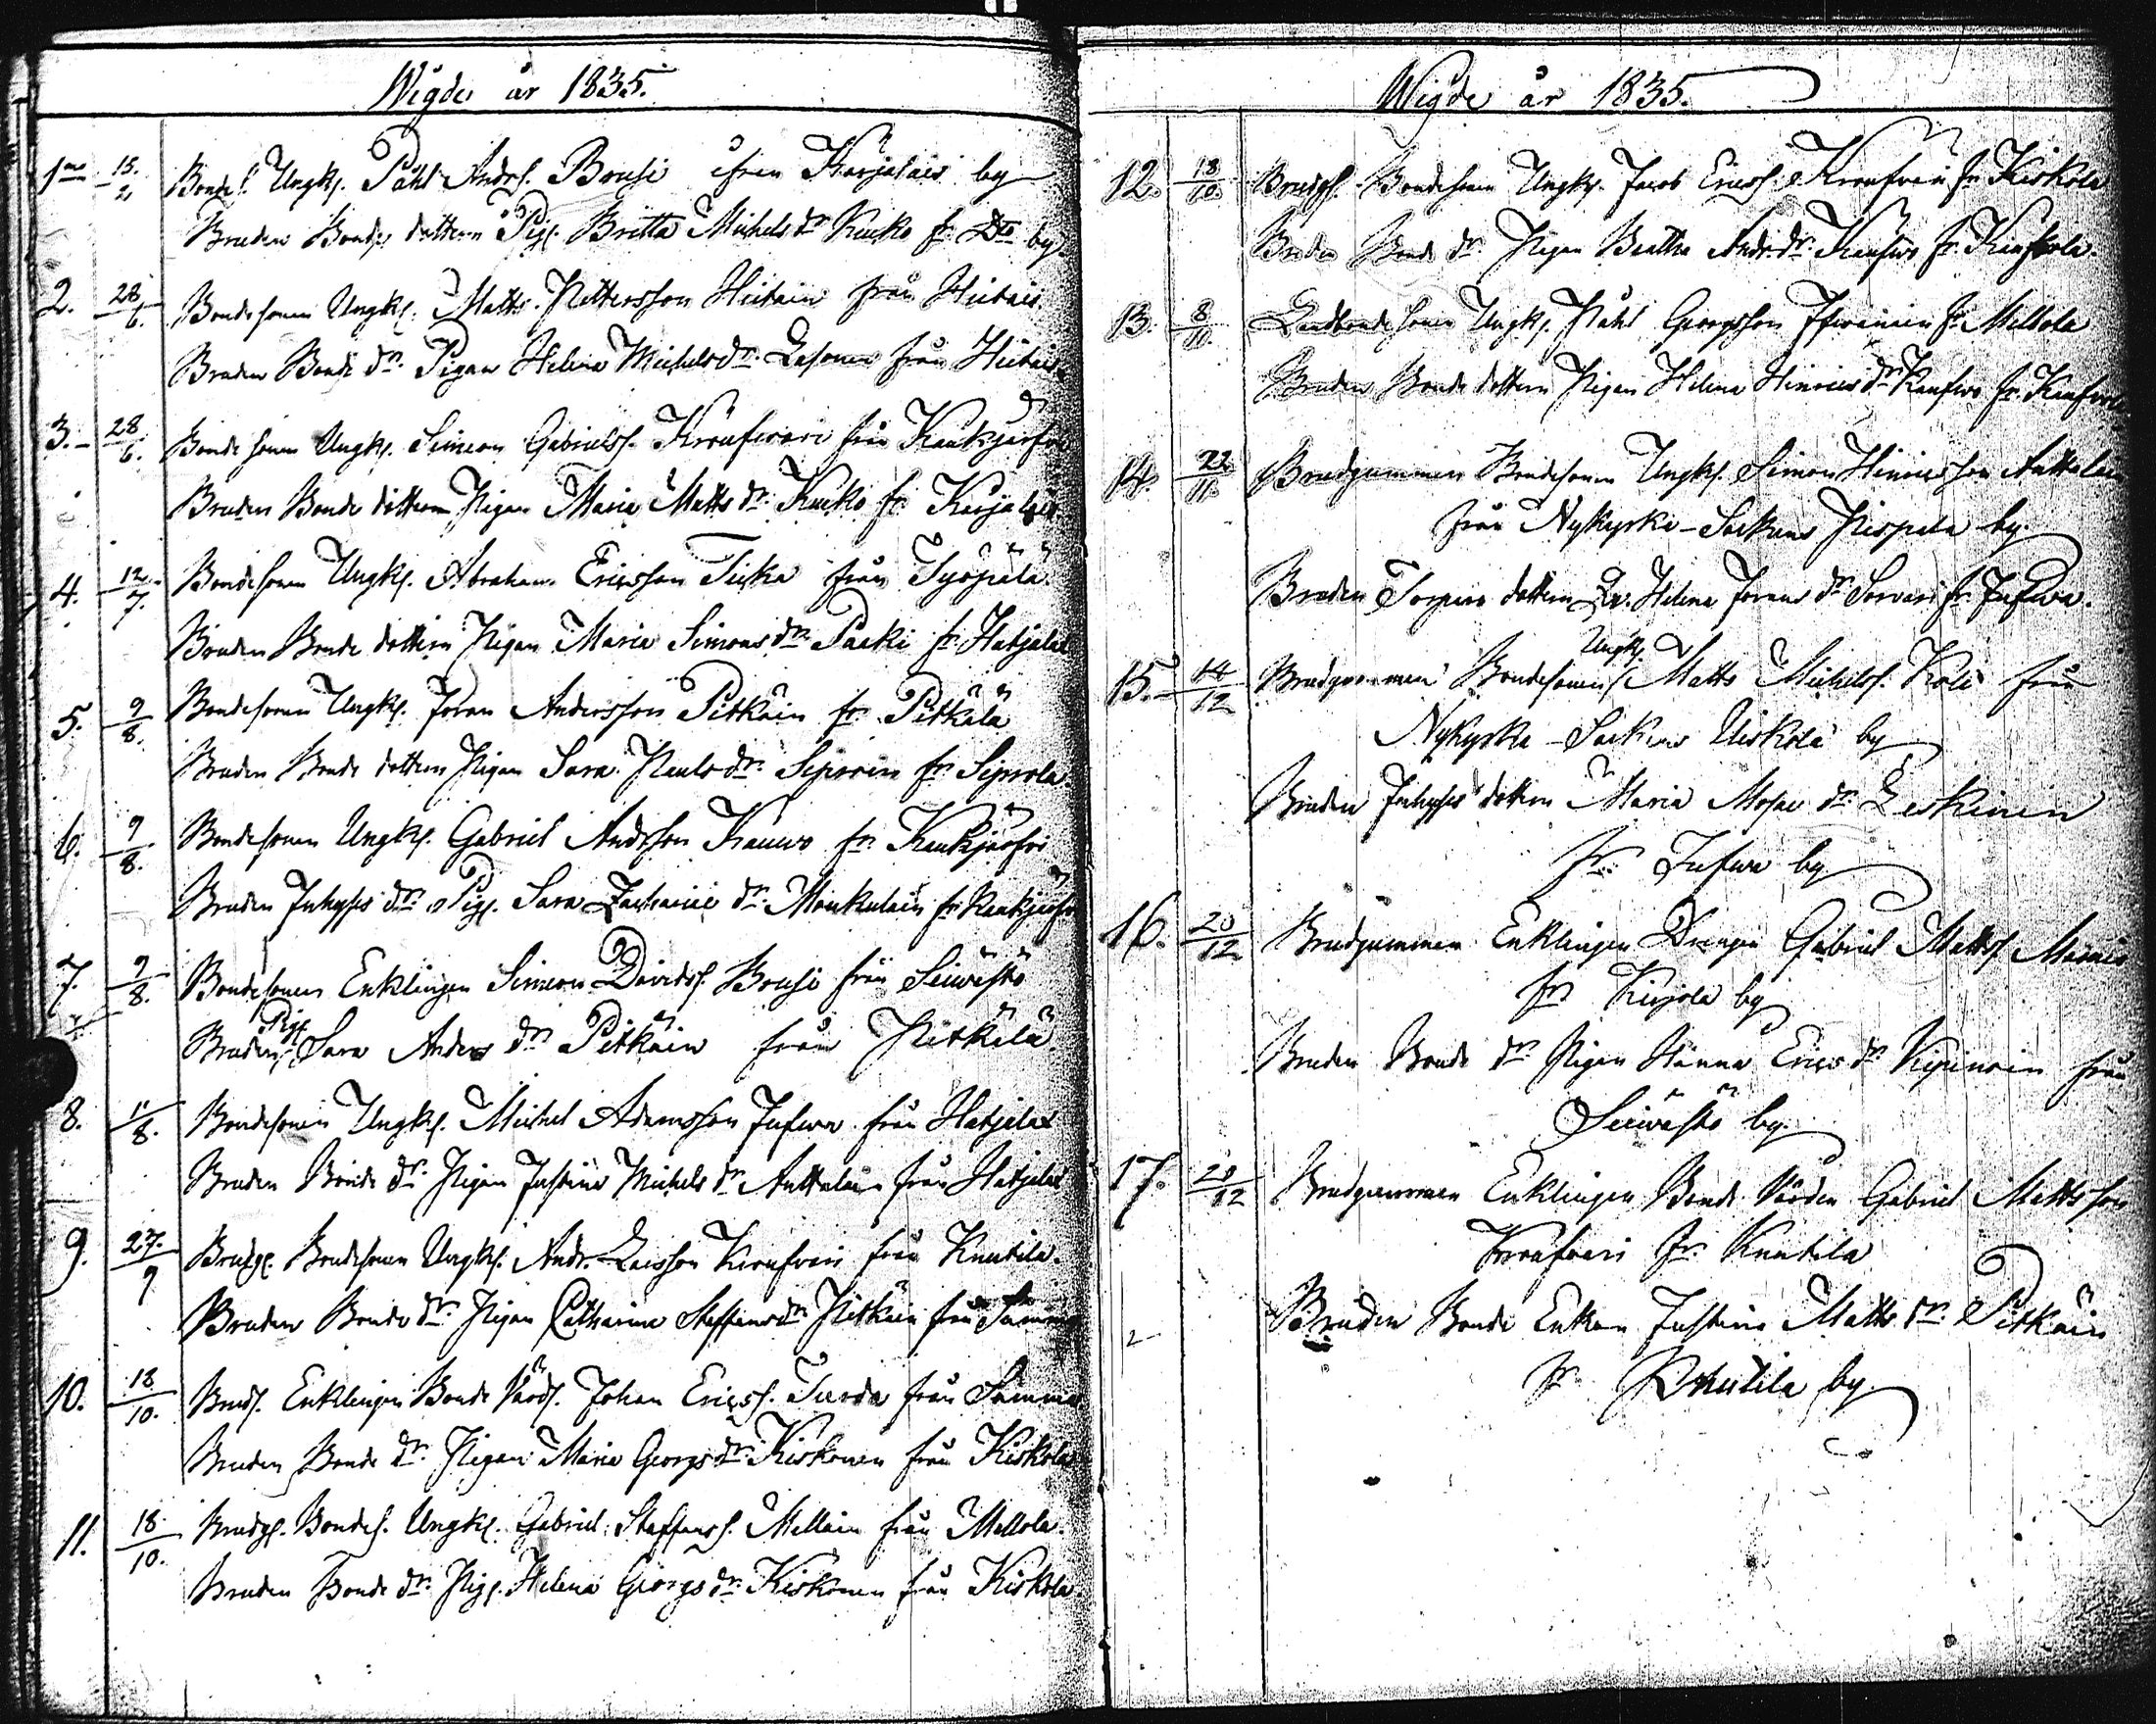 Wigde år 1835.
1mo 15/2 Bondes. Ungk. Påhl Anders. Brusi ifrån Karjalais by
Bruden Bonde dottern Pig. Britta Michels dr Kucko fr. Do by
2. 28/6. Bondesonen Ungk. Matts Pettersson Hietain från Hietais.
Bruden Bonde dr. Pigan Helena Michelsdr. Lasonen från Hietais
3. 28/6. Bondesonen Ungk. Simeon Gabrielss. Kronfwari från Kaukjerfwi
Bruden Bonde dottern Pigan Maria Matts dr. Kucko fr. Karjalais
4. 12/7. Bondesonen Ungk. Abraham Ericsson Ticka från Työpälä
Bruden Bonde dottern Pigan Maria Simons dr. Packi fr. Hatjalax
5. 9/8. Bondesonen Ungk. Jöran Andersson Pitkäin fr. Pitkälä
Bruden Bonde dottern Pigan Sara Pauls dr. Siproin fr. Siprola.
6. 9/8. Bondesonen Ungk. Gabriel Andersson Kauwo fr. Kaukjärfwi
Bruden Inhyses dr. Pig. Sara Zacharie dr. Moukulain fr. Kaukjärfwi
7. 9/8. Bondesonen Enklingen Simeon Davids. Brusi från Seiwästö
Bruden Pig. Sara Anders dr Pitkäin från Pitkälä
8. 11/8. Bondesonen Ungk. Michel Adamsson Infwa från Hatjalax
Bruden Bonde dr. Pigan Justina Michels dr Anttalain från Hatjalax
9. 27/9 Brudg. Bondesonen Ungk. Andr. Larsson Kronfwari från Knutila.
Bruden Bonde dr. Pigan Catharina Staffans dr. Pitkäin från
10. 18/10. Brudg. Enklingen Bonde Värd. Johan Ericss. Turda från
Bruden Bonde dr. Pigan Maria Georgs dr. Kiskonen från Kiskola
11. 18/10. Brudg. Bondes. Ungk. Gabriel Staffanss. Mellain från Mellola.
Bruden Bonde dr. Pig. Helena Georgs dr. Kiskonen från Kiskola
Wigde år 1835.
12. 18/10. Brudg. Bondesonen Ungk. Jacob Ericss. Kronfwari fr. Kiskola
Bruden Bonde dr. Pigan Beatha Andr. dr. Kaufwo fr. Kaufwola.
13. 8/11. Landbondesonen Ungk. Påhl Georgsson fr. Mellola
Bruden Bonde dottern Pigan Helena Hinrics dr Kaufwo fr. Kaufwola
14. 22/11. Brudgummen Bondesonen Ungk. Simon Hinricsson Anttalain
från Nykyrka - Sockens Pispala by.
Bruden Torpare dottern Helena Jörans dr Sorvari fr. Infwa.
15. 14/12 Brudgummen Bondesonen Ungk. Matts Michelss. Koli från
Nykyrka - Sockens Uiskola by
Bruden Inhyses dottern Maria Mosae dr Leskinen
fr. Infwa by
16. 20/12 Brudgummen Enklingen Drengen Gabriel Mattss.
fr. Kirjola by
Bruden Bonde dr Pigan Hanna Erics dr Kipinoin från
Seiwästö by.
17. 20/12 Brudgummen Enklingen Bonde Värden Gabriel Mattsson
Kronfwari fr. Knutila
Bruden Bonde Enkan Justina Matts dr. Pitkäin
fr. Knutila by